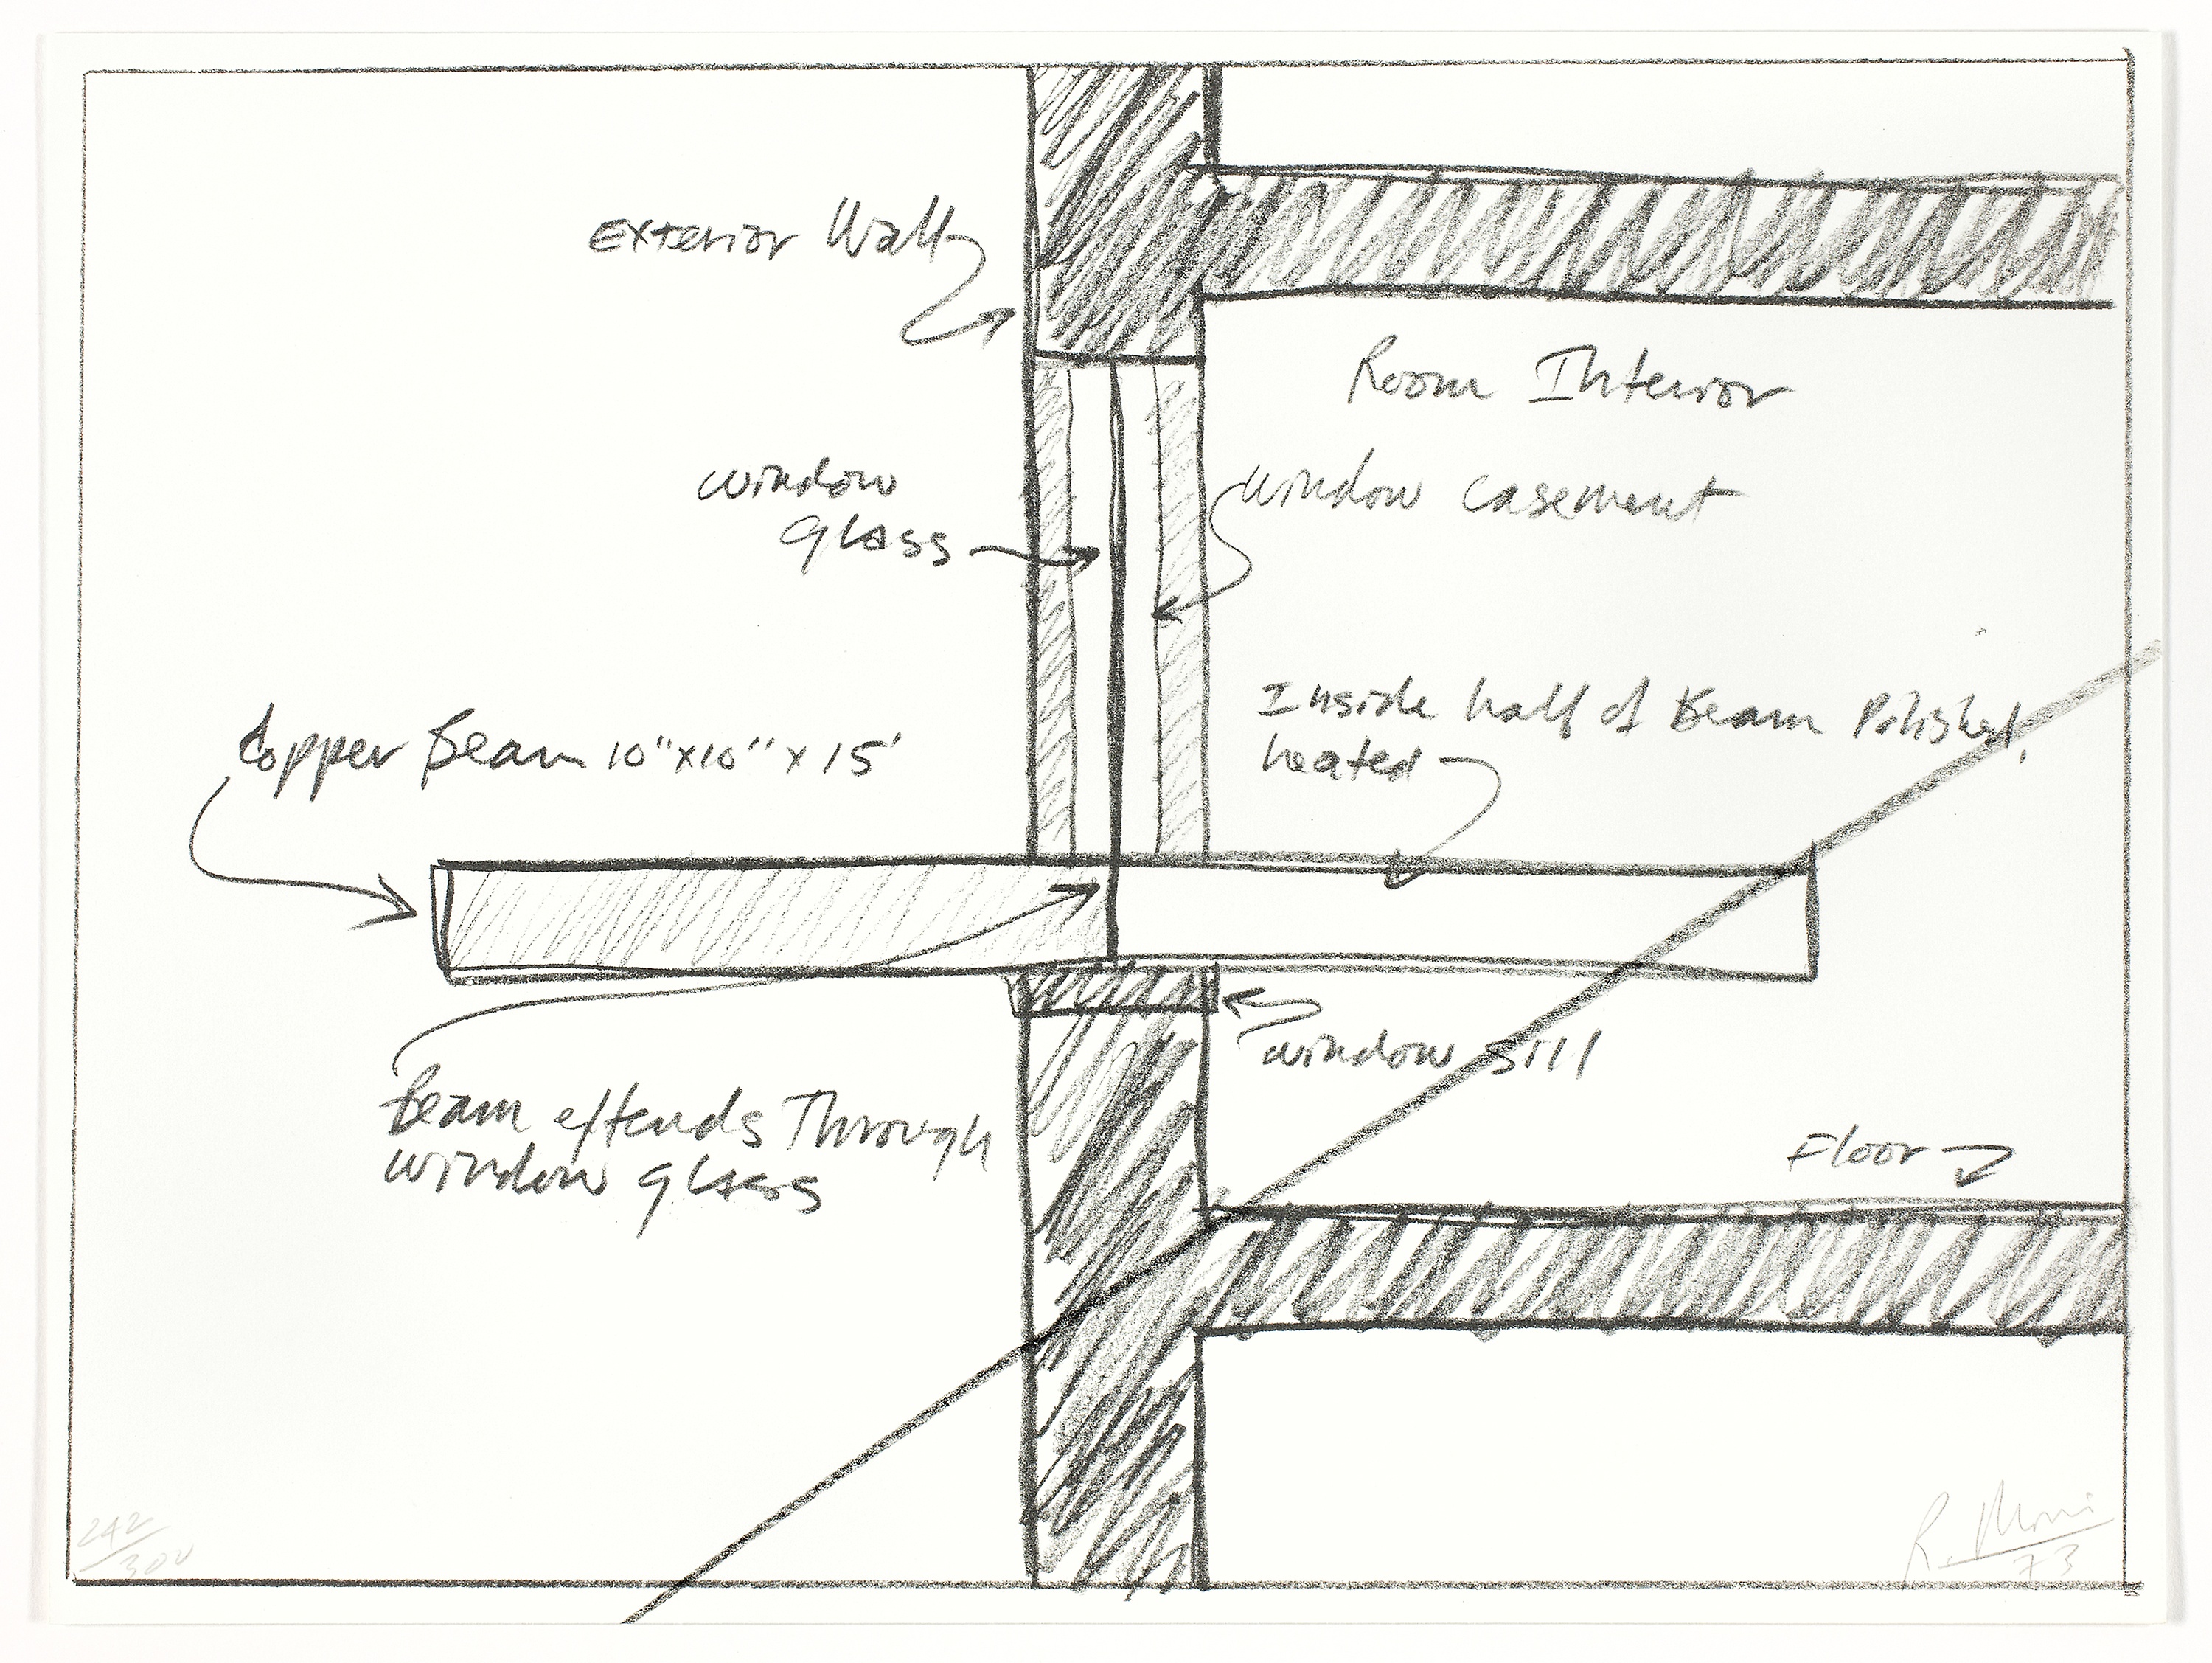 Exterior Wall
Room Interior
window
glass
window casement
Inside half of Beam Polished,
heated
Copper Beam 10"x10" x 15'
window sill
Beam extends Through
window glass
Floor
242/300
R. Morris
73